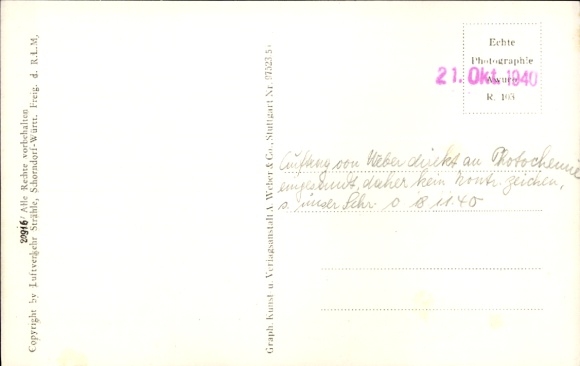 20916 Alle Rechte vorbehalten
Copyright by Luftverkehr Strähle, Schorndorf-Württ. Freig. d. R.L.M.
Graph. Kunst u. Verlagsanstalt A. Weber & Co., Stuttgart Nr. 97323
Echte
Photographie
21. Okt. 1940
R. 103
Auftrag von Weber direkt an Photochemie
eingesandt, daher kein Kontr. zeichen,
s. unser Schr. 8.11.40